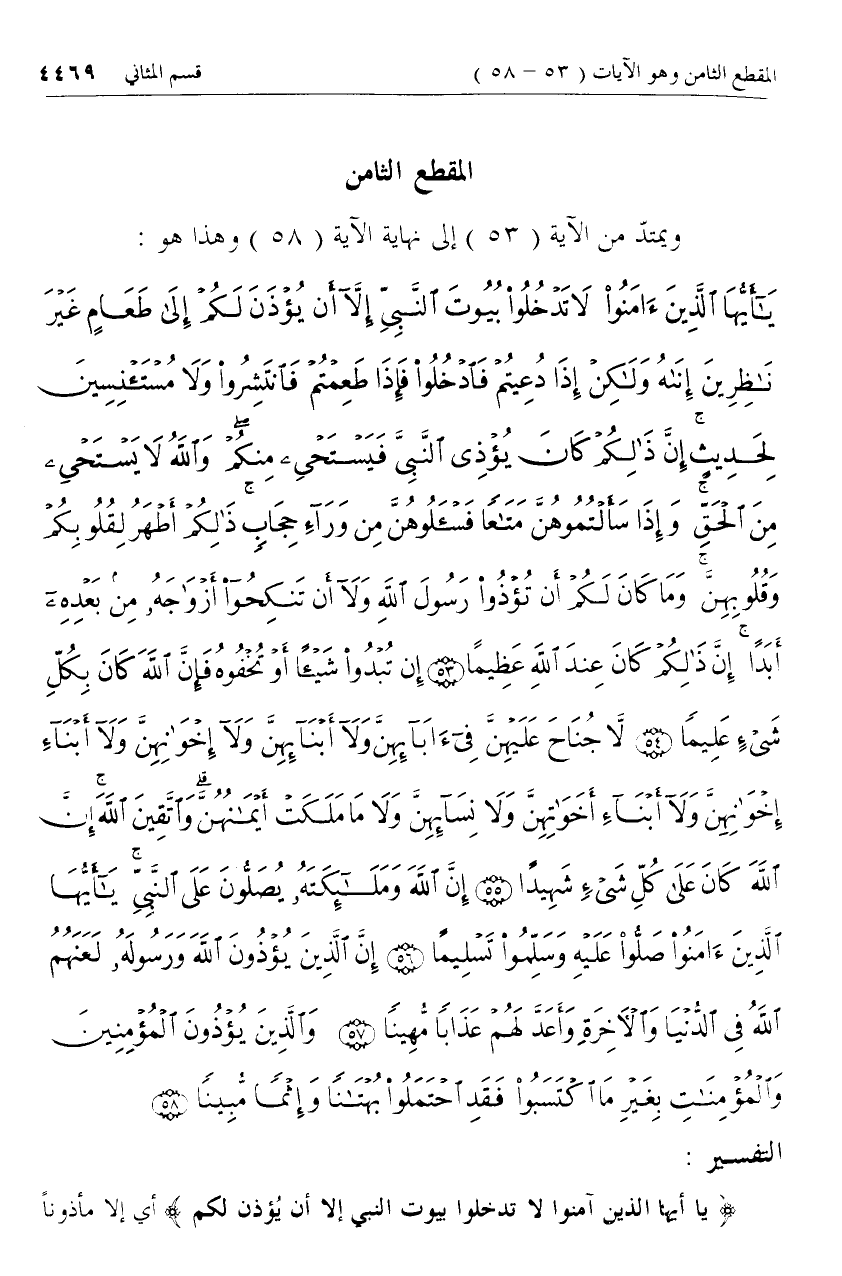 المقطع الثامن وهو الآيات ( ٥٣ - ٥٨ ) قسم المثاني ٤٤٦٩
المقطع الثامن
ويمتدّ من الآية ( ٥٣ ) إلى نهاية الآية ( ٥٨ ) وهذا هو :
يَٰٓأَيُّهَا ٱلَّذِينَ ءَامَنُوا۟ لَا تَدْخُلُوا۟ بُيُوتَ ٱلنَّبِىِّ إِلَّآ أَن يُؤْذَنَ لَكُمْ إِلَىٰ طَعَامٍ غَيْرَ
نَٰظِرِينَ إِنَىٰهُ وَلَٰكِنْ إِذَا دُعِيتُمْ فَٱدْخُلُوا۟ فَإِذَا طَعِمْتُمْ فَٱنتَشِرُوا۟ وَلَا مُسْتَـْٔنِسِينَ
لِحَدِيثٍ ۚ إِنَّ ذَٰلِكُمْ كَانَ يُؤْذِى ٱلنَّبِىَّ فَيَسْتَحْىِۦ مِنكُمْ ۖ وَٱللَّهُ لَا يَسْتَحْىِۦ
مِنَ ٱلْحَقِّ ۚ وَإِذَا سَأَلْتُمُوهُنَّ مَتَٰعًا فَسْـَٔلُوهُنَّ مِن وَرَآءِ حِجَابٍ ۚ ذَٰلِكُمْ أَطْهَرُ لِقُلُوبِكُمْ
وَقُلُوبِهِنَّ ۚ وَمَا كَانَ لَكُمْ أَن تُؤْذُوا۟ رَسُولَ ٱللَّهِ وَلَآ أَن تَنكِحُوٓا۟ أَزْوَٰجَهُۥ مِنۢ بَعْدِهِۦٓ
أَبَدًا ۚ إِنَّ ذَٰلِكُمْ كَانَ عِندَ ٱللَّهِ عَظِيمًا ٥٣ إِن تُبْدُوا۟ شَيْـًٔا أَوْ تُخْفُوهُ فَإِنَّ ٱللَّهَ كَانَ بِكُلِّ
شَىْءٍ عَلِيمًا ٥٤ لَّا جُنَاحَ عَلَيْهِنَّ فِىٓ ءَابَآئِهِنَّ وَلَآ أَبْنَآئِهِنَّ وَلَآ إِخْوَٰنِهِنَّ وَلَآ أَبْنَآءِ
إِخْوَٰنِهِنَّ وَلَآ أَبْنَآءِ أَخَوَٰتِهِنَّ وَلَا نِسَآئِهِنَّ وَلَا مَا مَلَكَتْ أَيْمَٰنُهُنَّ ۗ وَٱتَّقِينَ ٱللَّهَ ۚ إِنَّ
ٱللَّهَ كَانَ عَلَىٰ كُلِّ شَىْءٍ شَهِيدًا ٥٥ إِنَّ ٱللَّهَ وَمَلَٰٓئِكَتَهُۥ يُصَلُّونَ عَلَى ٱلنَّبِىِّ ۚ يَٰٓأَيُّهَا
ٱلَّذِينَ ءَامَنُوا۟ صَلُّوا۟ عَلَيْهِ وَسَلِّمُوا۟ تَسْلِيمًا ٥٦ إِنَّ ٱلَّذِينَ يُؤْذُونَ ٱللَّهَ وَرَسُولَهُۥ لَعَنَهُمُ
ٱللَّهُ فِى ٱلدُّنْيَا وَٱلْءَاخِرَةِ وَأَعَدَّ لَهُمْ عَذَابًا مُّهِينًا ٥٧ وَٱلَّذِينَ يُؤْذُونَ ٱلْمُؤْمِنِينَ
وَٱلْمُؤْمِنَٰتِ بِغَيْرِ مَا ٱكْتَسَبُوا۟ فَقَدِ ٱحْتَمَلُوا۟ بُهْتَٰنًا وَإِثْمًا مُّبِينًا ٥٨
التفسير :
﴿ يا أيها الذين آمنوا لا تدخلوا بيوت النبي إلا أن يُؤذن لكم ﴾ أي إلا مأذوناً